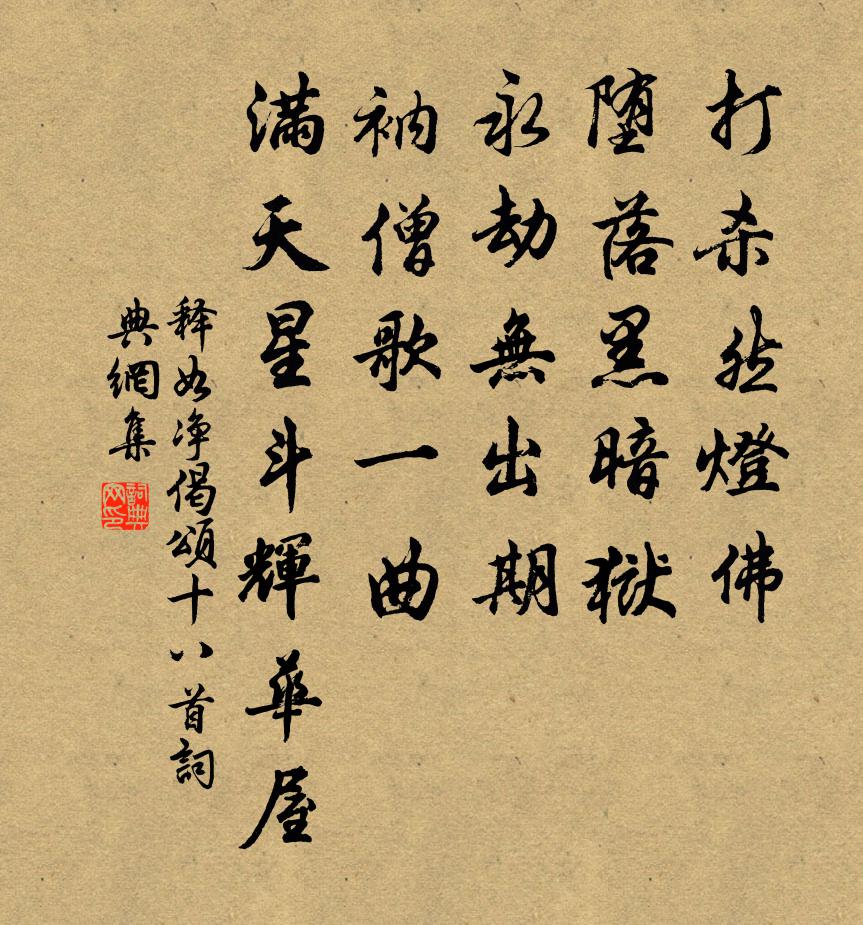 打杀然燈佛
堕落黑暗獄
永劫無出期
衲僧歌一曲
滿天星斗輝華屋
释如净偈頌十八首詞
典網集
詞典
网印